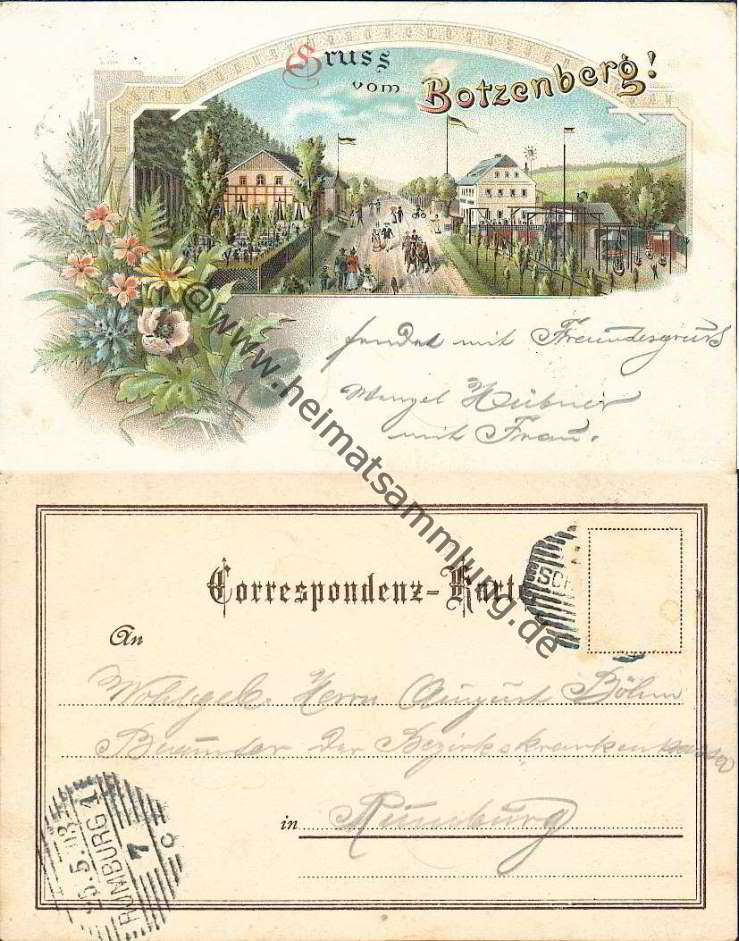 Gruss
vom Botzenberg!
sendet mit Freundesgruß
Wenzel Hübner
mit Frau.
@www.heimatsammlung.de
Correspondenz-Karte
An
Wohlgeb. Herrn August Böhm
Beamter der Bezirkskrankenkasse
in Rumburg
RUMBURG 1
25.5.03
7